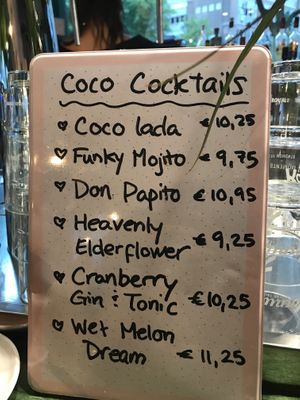 Coco Cocktails
♡ Coco lada €10,25
♡ Funky Mojito €9,75
♡ Don Papito €10,95
♡ Heavenly
Elderflower €9,25
♡ Cranberry
Gin & Tonic €10,25
♡ Wet Melon
Dream €11,25